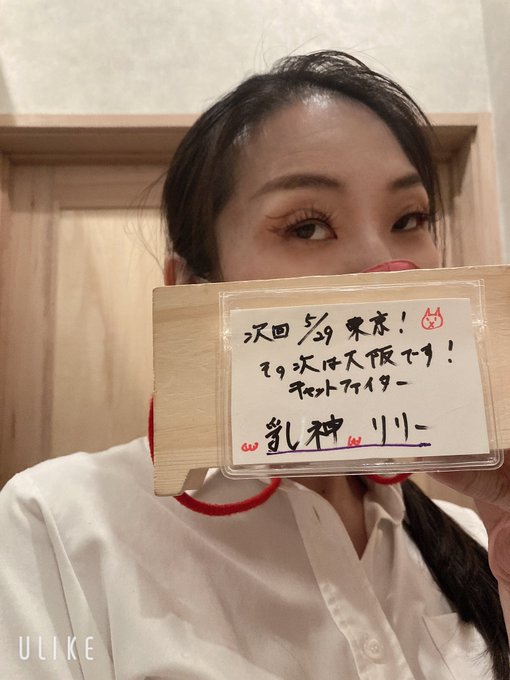 次回 5/29 東京!
その次は大阪です!
キャットファイター
乳神 リリー
ULIKE